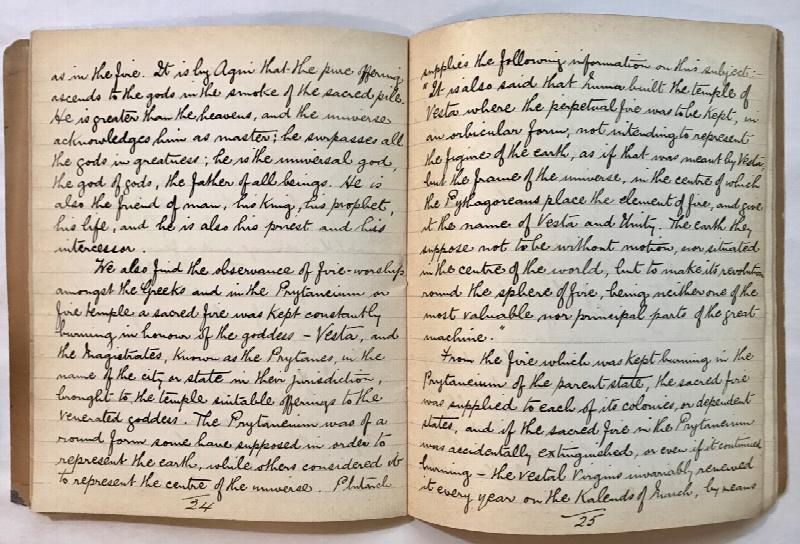 as in the fire. It is by Agni that the pure offering
ascends to the gods in the smoke of the sacred pile.
He is greater than the heavens, and the universe
acknowledges him as master; he surpasses all
the gods in greatness; he is the universal god,
the god of gods, the father of all beings. He is
also the friend of man, his King, his prophet,
his life, and he is also his priest and his
intercessor.
We also find the observance of fire-worship
amongst the Greeks and in the Prytaneium or
fire temple a sacred fire was kept constantly
burning in honour of the goddess - Vesta, and
the Magistrates, known as the Prytanes, in the
name of the city or state in their jurisdiction,
brought to the temple suitable offerings to the
venerated goddess. The Prytaneum was of a
round form some have supposed in order to
represent the earth, while others considered it
to represent the centre of the universe. Plutarch
24
supplies the following information on this subject:-
"It is also said that Numa built the temple of
Vesta where the perpetual fire was to be kept, in
an orbicular form, not intending to represent
the figure of the earth, as if that was meant by Vesta
but the frame of the universe, in the centre of which
the Pythagoreans place the element of fire, and give
it the name of Vesta and Unity. The earth they
suppose not to be without motion, nor situated
in the centre of the world, but to make its revolution
round the sphere of fire, being neither one of the
most valuable nor principal parts of the great
machine."
From the fire which was kept burning in the
Prytaneium of the parent state, the sacred fire
was supplied to each of its colonies, or dependent
states, and if the sacred fire in the Prytanerum
was accidentally extinguished, or even if it continued
burning - the Vestal Virgins invariably renewed
it every year on the Kalends of March, by means
25